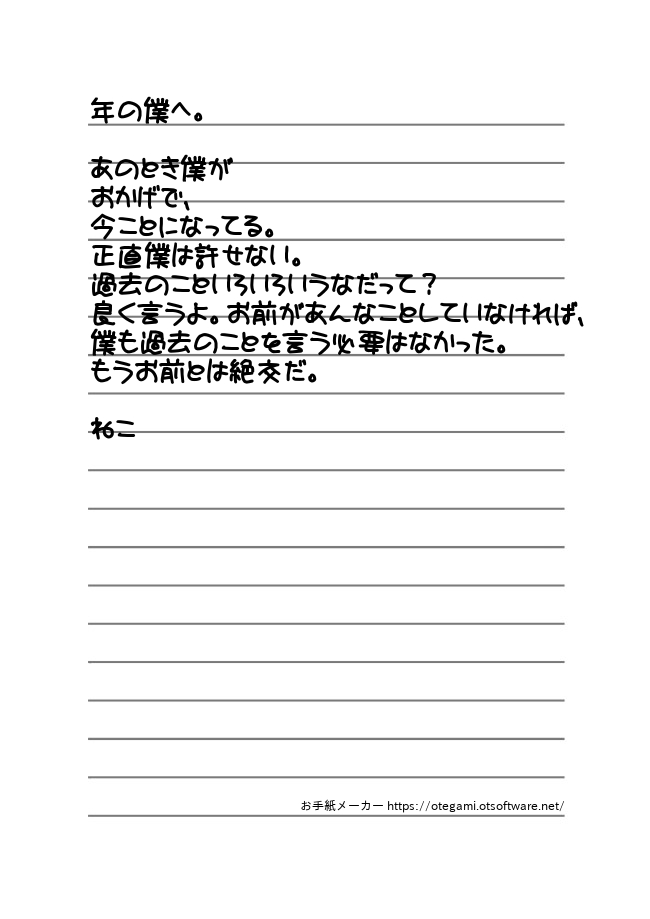 年の僕へ。
あのとき僕が
おかげで、
今ことになってる。
正直僕は許せない。
過去のこといろいろいうなだって？
良く言うよ。お前があんなことしていなければ、
僕も過去のことを言う必要はなかった。
もうお前とは絶交だ。
ねこ
お手紙メーカー https://otegami.otsoftware.net/